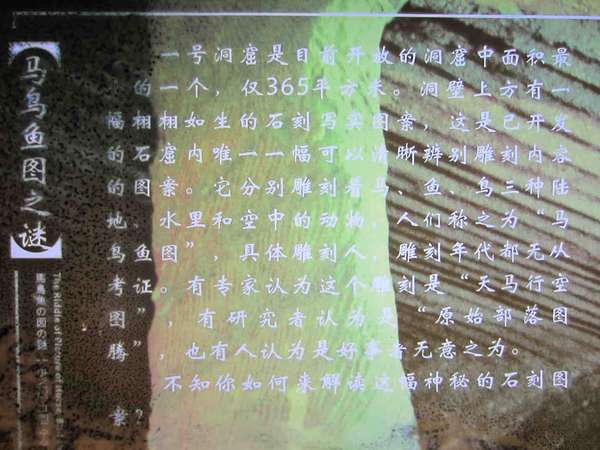 马鸟鱼图之谜
一号洞窟是目前开放的洞窟中面积最
的一个，仅365平方米。洞壁上方有一
幅栩栩如生的石刻写实图案，这是已开发
的石窟内唯一一幅可以清晰辨别雕刻内容
的图案。它分别雕刻着马、鱼、鸟三种陆
地、水里和空中的动物，人们称之为“马
鸟鱼图”，具体雕刻人，雕刻年代都无从
考证。有专家认为这个雕刻是“天马行空
图”，有研究者认为是“原始部落图
腾”，也有人认为是好事者无意之为。
不知你如何来解读这幅神秘的石刻图
案？
The Riddle of Picture of Horse, B
馬鳥魚の図の謎